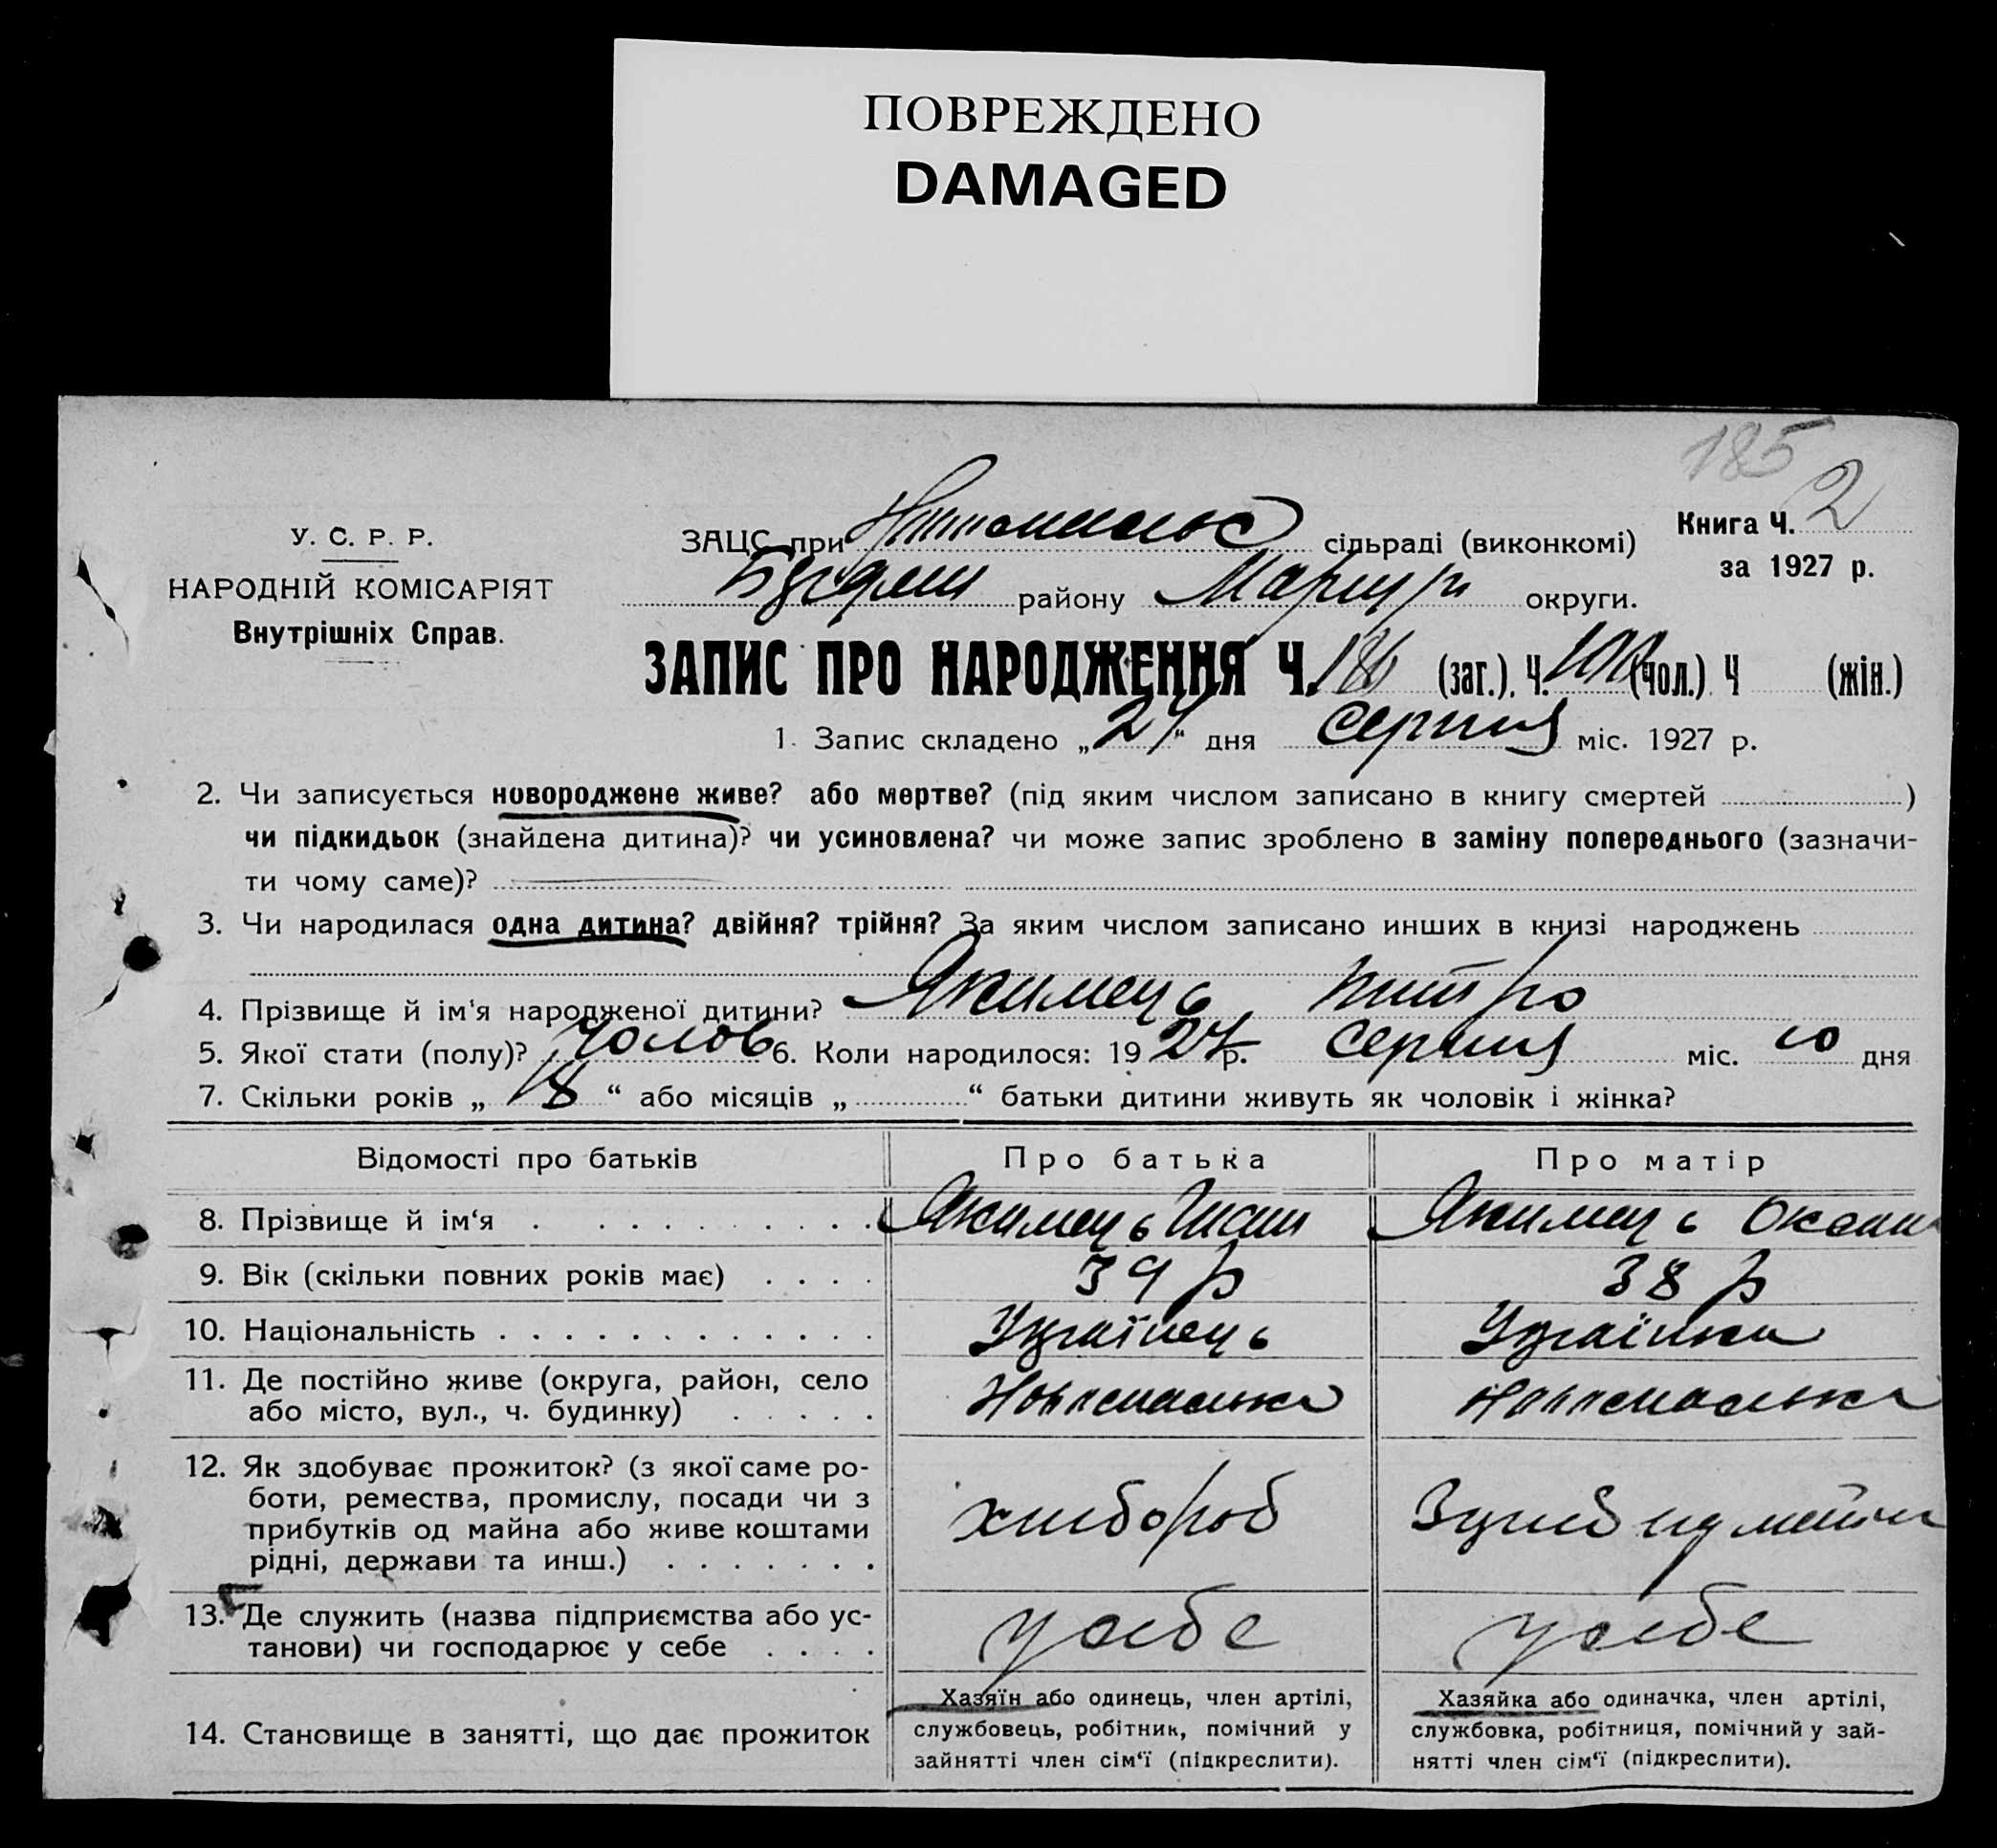 ПОВРЕЖДЕНО
DAMAGED
185
У. С. Р. Р.
НАРОДНІЙ КОМІСАРІЯТ
Внутрішніх Справ.
ЗАЦС при сільраді (виконкомі)
Книга Ч. 2
за 1927 р.
району Маріуп округи.
ЗАПИС ПРО НАРОДЖЕННЯ Ч. 186 (заг.). Ч. 100 (чол.) Ч (жін.)
1. Запис складено „24“ дня серпня міс. 1927 р.
2. Чи записується новороджене живе? або мертве? (під яким числом записано в книгу смертей )
чи підкидьок (знайдена дитина)? чи усиновлена? чи може запис зроблено в заміну попереднього (зазначи-
ти чому саме)?
3. Чи народилася одна дитина? двійня? трійня? За яким числом записано инших в книзі народжень
4. Прізвище й ім'я народженої дитини? Якимець Питро
5. Якої стати (полу)? чолов 6. Коли народилося: 1927 р. серпня міс. 10 дня
7. Скільки років „18“ або місяців „ “ батьки дитини живуть як чоловік і жінка?
Відомості про батьків Про батька Про матір
8. Прізвище й ім‘я Якимець Якимець Оксана
9. Вік (скільки повних років має) 39 р 38 р
10. Національність Українець Українка
11. Де постійно живе (округа, район, село
або місто, вул., ч. будинку)
12. Як здобуває прожиток? (з якої саме ро-
боти, ремества, промислу, посади чи з
прибутків од майна або живе коштами
рідні, держави та инш.) хлибороб
13. Де служить (назва підприємства або ус-
танови) чи господарює у себе у себе у себе
14. Становище в занятті, що дає прожиток
Хазяїн або одинець, член артілі,
службовець, робітник, помічний у
зайнятті член сім‘ї (підкреслити).
Хазяйка або одиначка, член артілі,
службовка, робітниця, помічний у зай-
нятті член сім‘ї (підкреслити).